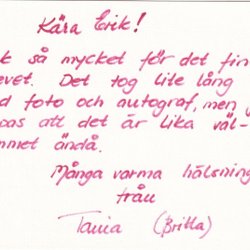 Kära Erik!
k så mycket för det fin
evet. Det tog lite lång
d foto och autograf, men j
pas att det är lika väl-
mmet ändå.
Många varma hälsning
från
Tania (Britta)